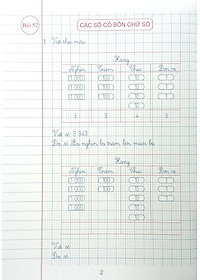 Bài 52
CÁC SỐ CÓ BỐN CHỮ SỐ
1 Viết theo mẫu:
Hàng
Nghìn Trăm Chục Đơn vị
1 000 100 10 1
1 000 100 10 1
1 000 100 10 1
10
3 3 4 3
Viết số: 3 343
Đọc số: Ba nghìn ba trăm bốn mươi ba
Hàng
Nghìn Trăm Chục Đơn vị
1 000 100 10 1
1 000 100 10
1 000 10
10
10
Viết số:
Đọc số:
2